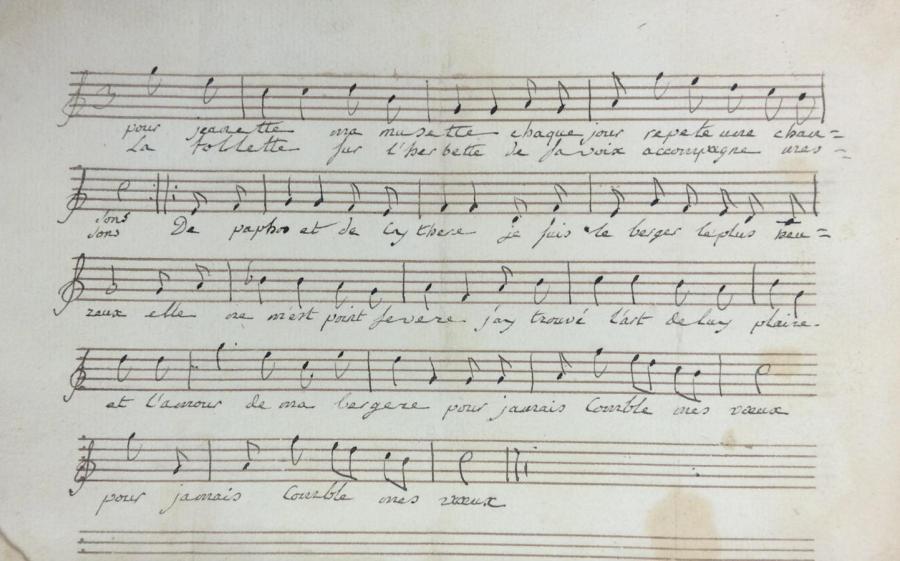 pour jeanette ma musette chaque jour repete une chan=
La tollette sur l'herbette de sa voix accompagne mes=
sons
sons
De paphos et de Cythere je suis le berger le plus heu=
reux elle ne m'est point severe j'ay trouvé l'art de luy plaire.
et l'amour de ma bergere pour jamais Comble mes vœux
pour jamais Comble mes vœux